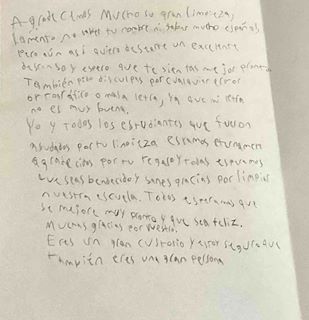 Agradecemos mucho su gran limpieza,
lamento no saber tu nombre ni saber mucho español,
pero aún así quiero desearte un excelente
descanso y espero que te sientas mejor pronto.
También pido disculpas por cualquier error
ortográfico o mala letra, ya que mi letra
no es muy buena.
Yo y todos los estudiantes que fueron
ayudados por tu limpieza estamos eternamente
agradecidos por tu regalo y todos esperamos
que seas bendecido y sanes gracias por limpiar
nuestra escuela. Todos esperamos que
se mejore muy pronto y que sea feliz.
Muchas gracias por
Eres un gran custodio y estoy seguro que
también eres una gran persona